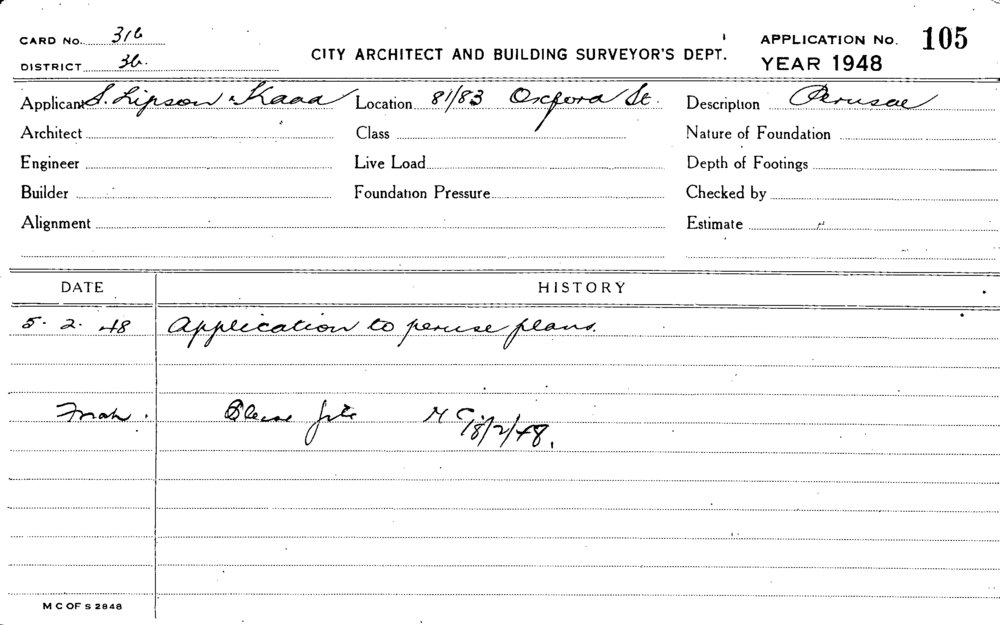 CARD No. 316
DISTRICT 36.
CITY ARCHITECT AND BUILDING SURVEYOR'S DEPT.
APPLICATION No. 105
YEAR 1948
Applicant S. Lipson & Kaad Location 81/83 Oxford St. Description Peruse
Architect Class Nature of Foundation
Engineer Live Load Depth of Footings
Builder Foundation Pressure Checked by
Alignment Estimate
DATE HISTORY
5. 2. 48 Application to peruse plans.
Please file 18/2/48.
M C OF S 2848